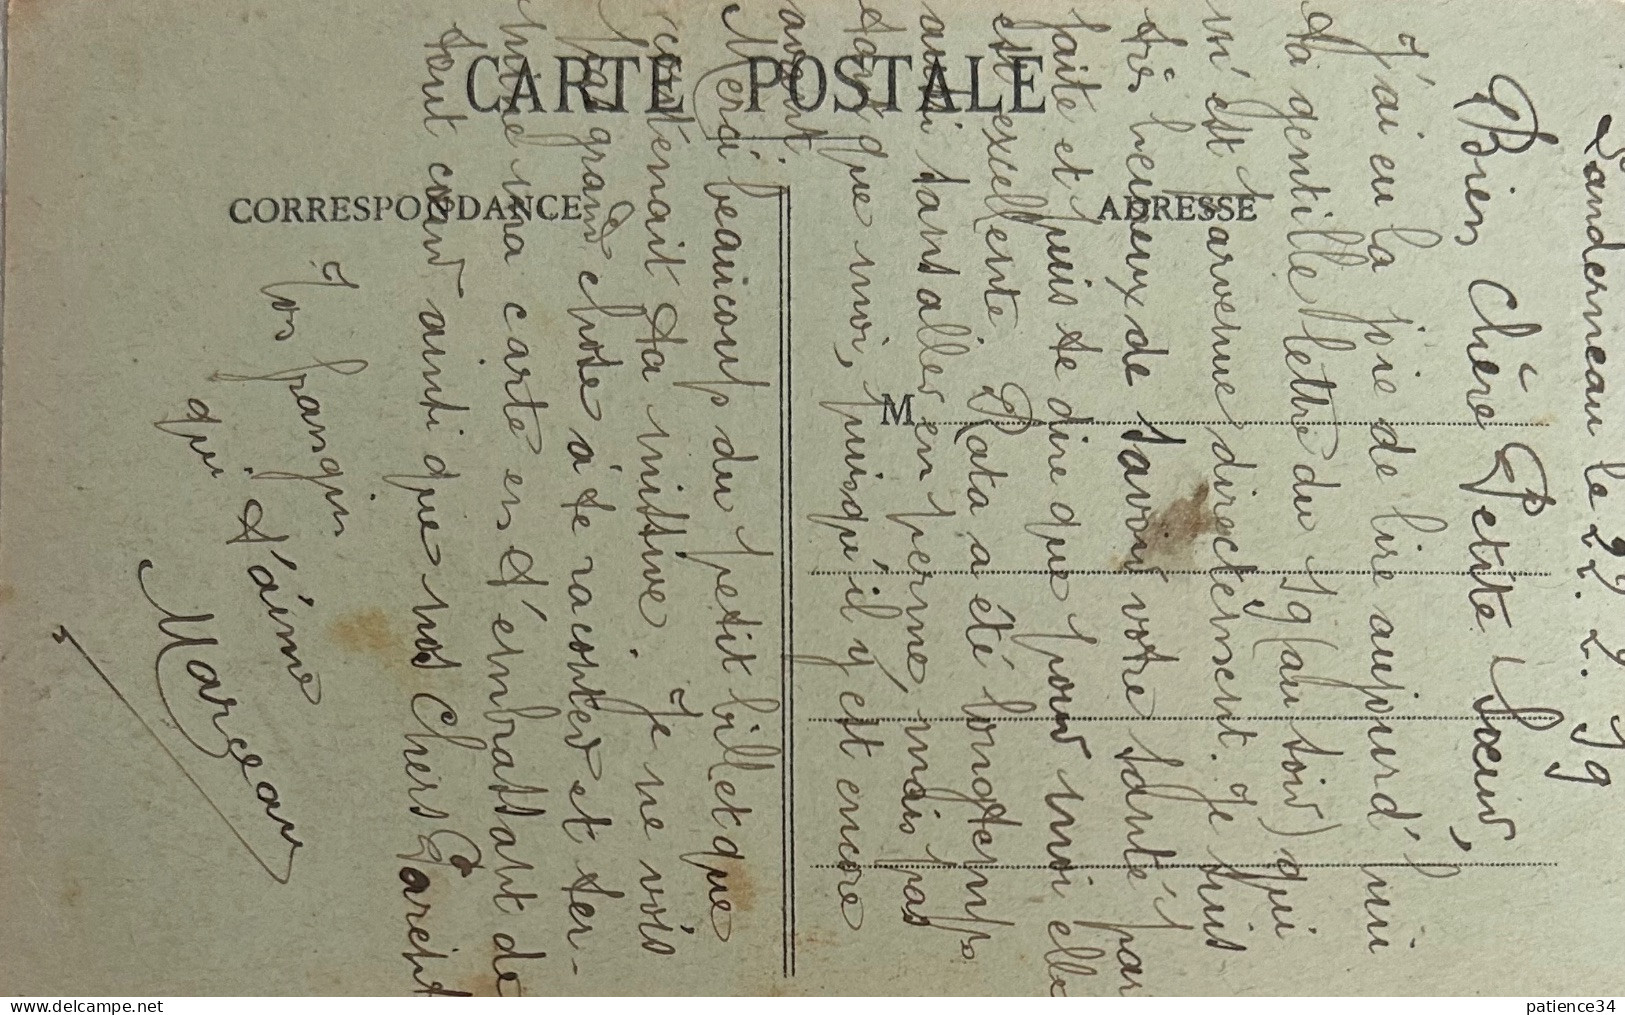 CARTE POSTALE
CORRESPONDANCE
ADRESSE
M
Landerneau le 22.2.19
Bien Chère Petite Sœur,
J'ai eu la joie de lire aujourd'hui
ta gentille lettre du 19 (au soir) qui
m'est parvenue directement. Je suis
très heureux de savoir votre santé par
faite et puis te dire que pour moi elle
est excellente. Rata a été longtemps
avant d'aller en perme, mais pas
tant que moi, puisqu'il y est encore
avant
Merci beaucoup du petit billet que
contenait ta missive. Je ne vois
pas grand chose à te raconter et ter-
mine ma carte en t'embrassant de
tout cœur ainsi que nos Chers Parents
Tos frangin
qui t'aime
Marceau
patience34